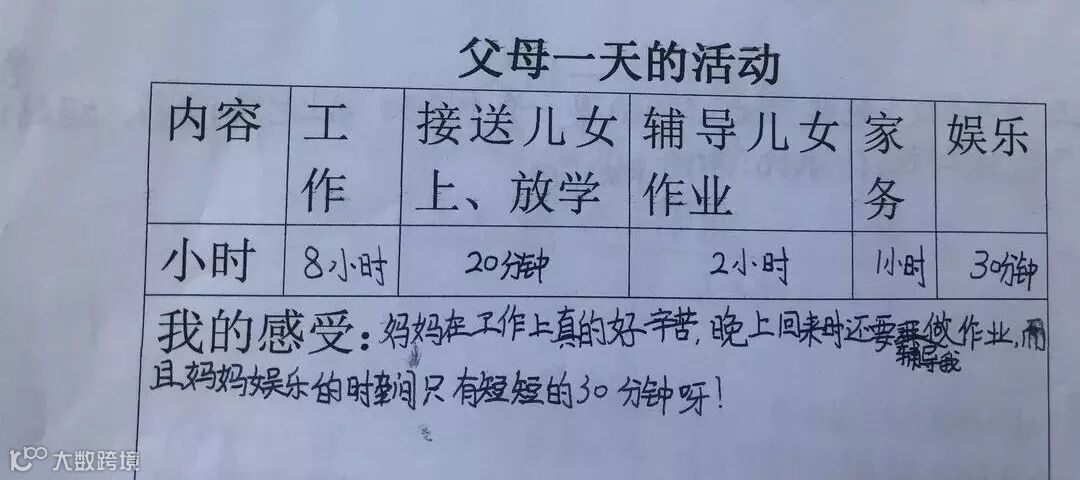 父母一天的活动
内容 工作 接送儿女上、放学 辅导儿女作业 家务 娱乐
小时 8小时 20分钟 2小时 1小时 30分钟
我的感受：妈妈在工作上真的好辛苦，晚上回来时还要辅导我做作业，而
且妈妈娱乐的时间只有短短的30分钟呀！
大数跨境